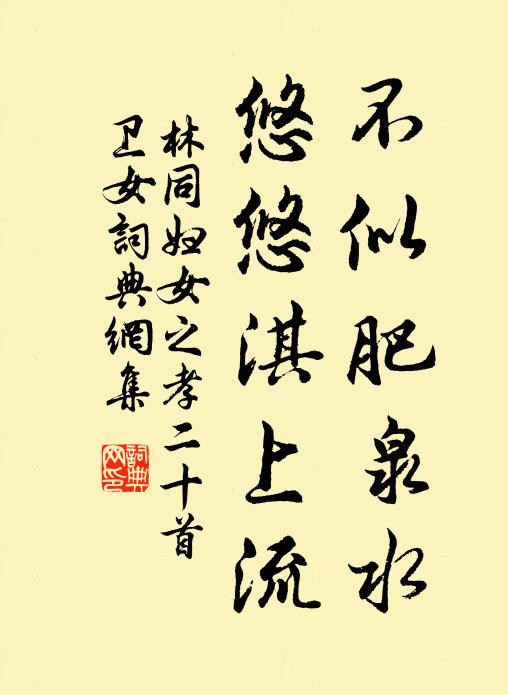 不似肥泉水
悠悠淇上流
林同妇女之孝二十首
卫女詞典網集
詞典網印